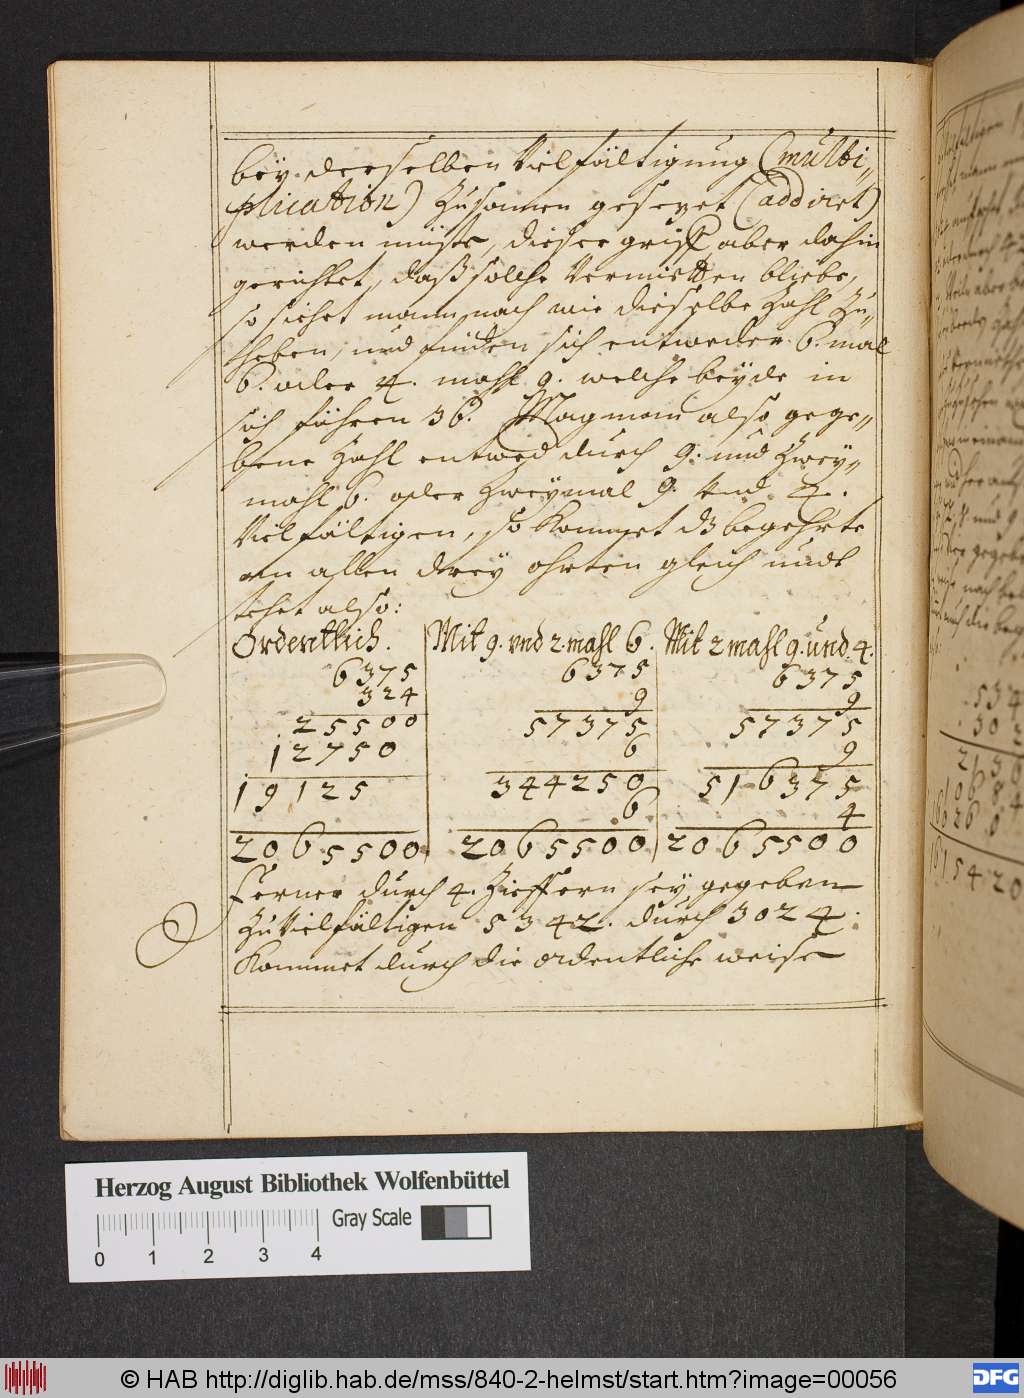 bey derselben Vielfältigung (multi„
plication) Zusamen gesezet (addiret)
werden müste, dieser griff aber dahin
gerichtet, daß solche Vermitten bliebe,
so siehet mann, nach wie dieselbe Zahl Zu„
heben, und finden sich entweder. 6. mal
6. oder 4. mahl 9. welche beyde in
sich führen 36. Mag man also gege„
bene Zahl entwed durch 9. und Zwey„
mahl 6. oder Zweymal 9. und 4.
Vielfältigen, so kommet dz begehrte
an allen drey ohrten gleich undt
stehet also:
Ordentlich. Mit 9. vnd 2. mahl 6. Mit 2 mahl 9. und 4.
6375 6375 6375
324 9 9
25500 57375 57375
12750 6 9
19125 344250 516375
6 4
2065500 2065500 2065500
Ferner durch 4. Zieffern sey gegeben
Zu Vielfältigen 5342. durch 3024.
Kommet durch die ordentliche weise
534
302
2136
1068 4
16026 0
16154 20
Herzog August Bibliothek Wolfenbüttel
Gray Scale
0 1 2 3 4
© HAB http://diglib.hab.de/mss/840-2-helmst/start.htm?image=00056
DFG